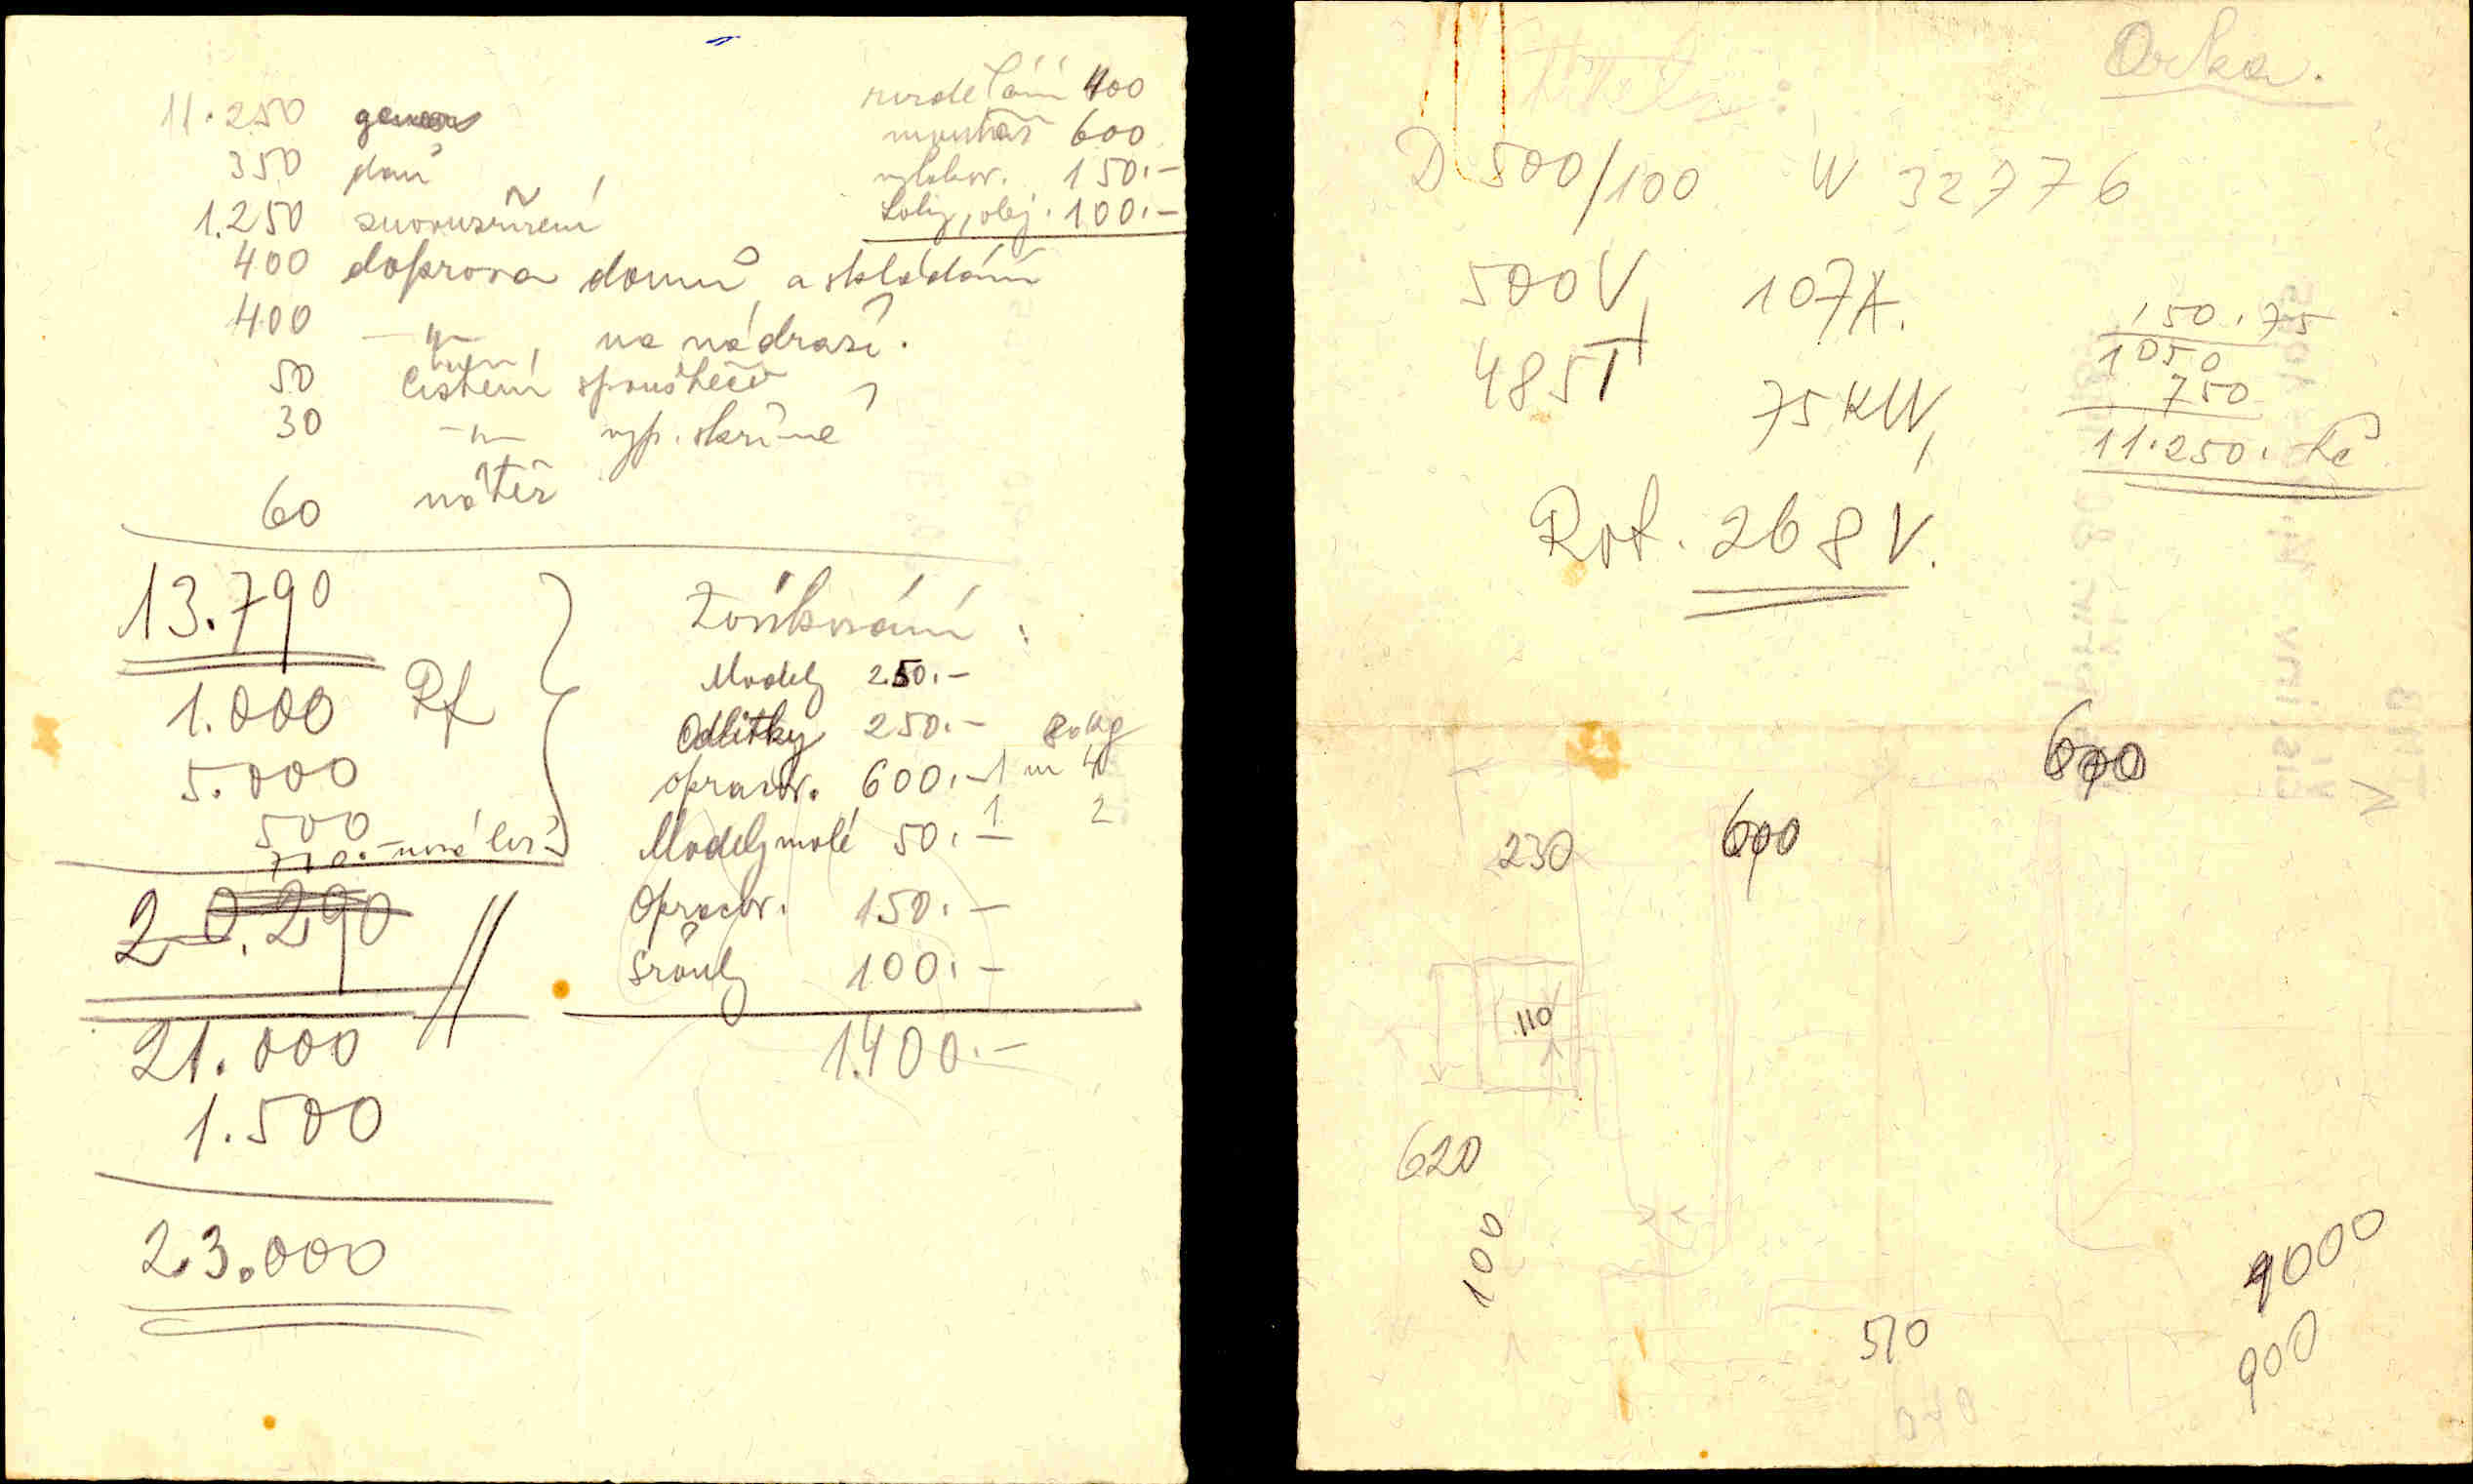 11.250
350 daň
1.250 znovuzřízení
400 doprava domů a skládání
400 —„— na nádraží.
50 čistění spouštěče
30 —„— vyp. skříně
60 nátěr
13.790
1.000 Rf
5.000
500
710.- nové
20.290
21.000
1.500
23.000
400
montáž 600
150.-
olej. 100.-
Modely 250.-
Odlitky 250.- 80 kg
opracov. 600.- 1 m 40
Modely malé 50.- 1 2
Opracov. 150.-
Šrouby 100.-
1.400.-
Orka.
D 500/100 W 32776
500V, 107A.
485T 75KW,
Rot. 268V.
150.75
1050
750
11.250. Kč
600
230 600
110
620
100
510
9000
900